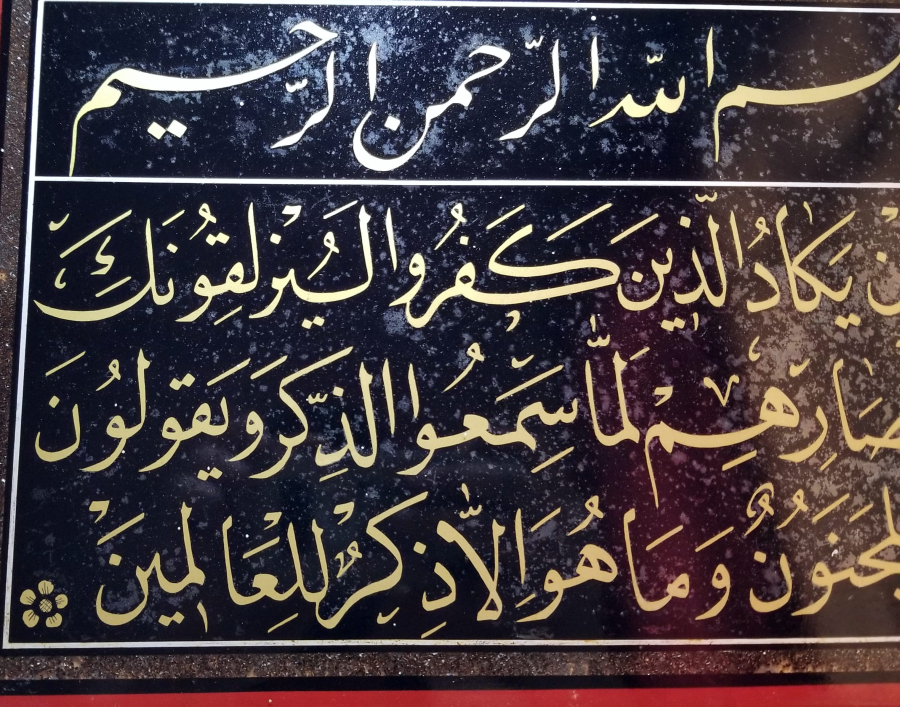 سم الله الرحمن الرحيم
ن يكاد الذين كفروا ليزلقونك
صارهم لما سمعوا الذكر ويقولون
لمجنون وما هو الا ذكر للعالمين